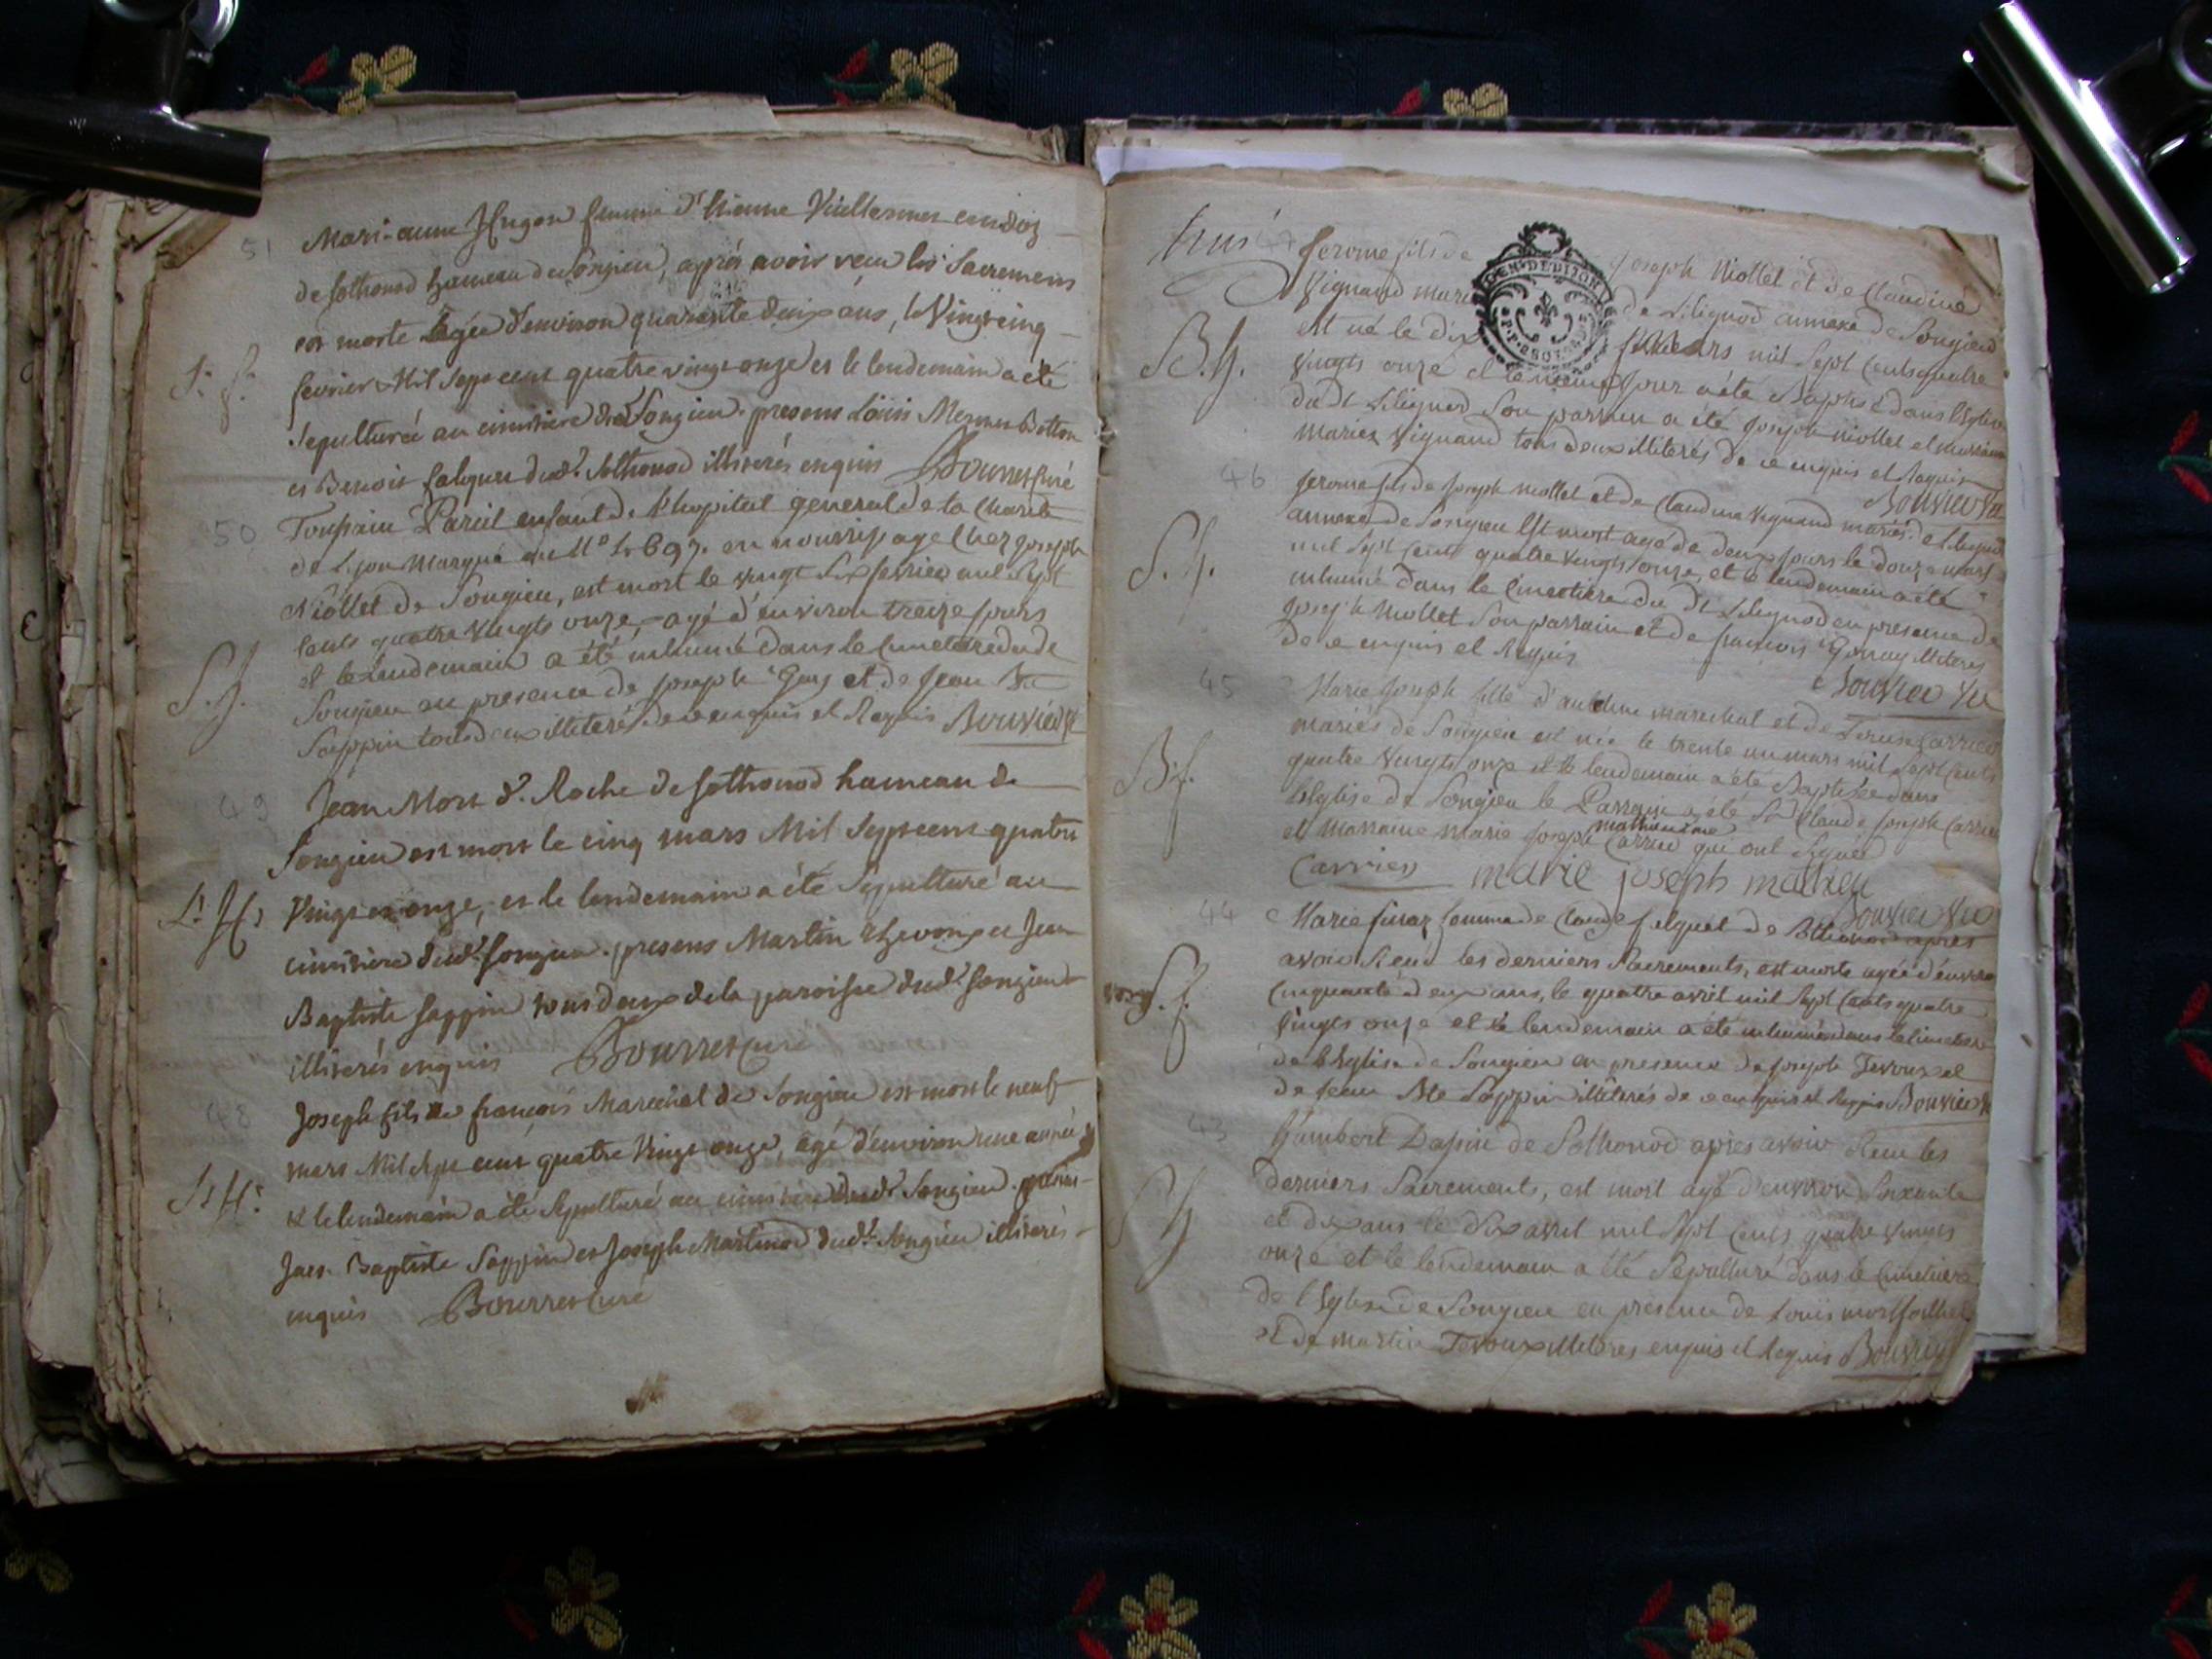 51 Mari-anne Hugon femme d'Etienne Vuillermet
de Sothonod hameau de Songieu, après avoir recu les Sacremens
est morte agée d'environ quarente deux ans, le Vingt cinq
fevrier Mil Sept cent quatre vingt onze et le lendemain a été
sepulturée au cimitière dud. Songieu. presens Loüis
et Benoit dud. Sothonod illiterés enquis Bourret curé
50 Toussain Pareil enfant de l'hopital general de la Charité
de Lyon Marqué du N° en nourrissage Chez Joseph
Niollet de Songieu, est mort le vingt Six fevrier mil Sept
Cents quatre Vingts onze, agé d'environ treize jours
et le Lendemain a été inhumé dans le Cimetiere du de
Songieu en presence de Joseph Guy et de Jean Bte
Sappin tous deux illiterés de ce enquis et Requis Bouvier
49 Jean Mort d. Roche de Sothonod hameau de
Songieu est mort le cinq mars Mil Sept cent quatre
Vingt et onze, et le lendemain a été Sepulturé au
cimitiere dud. Songieu. presens Martin Thevoux et Jean
Baptiste Sappin tous deux de la paroisse dud. Songieu
illiterés enquis Bourret curé
48 Joseph fils de françois Marechal de Songieu est mort le neuf
mars Mil Sept cent quatre Vingt onze, agé d'environ une année
et le lendemain a été Sepulturé au cimitière dud. Songieu. presens
Jean Baptiste Sappin et Joseph Martinod dud. Songieu illiterés
enquis Bourret curé
47 Jerome fils de Joseph Niollet et de Claudine
GEN. DE DIJON
Vignand mariés de Lilignod annexe de Songieu
B. J. est né le dix mars mil Sept Cents quatre
vingts onze et le même jour a été Baptisé dans l'Eglise
du dt Lilignod Son parrain a été Joseph Niollet et marraine
Vignand tous deux illiterés de ce enquis et Requis
Bouvier Vic
46 Jerome fils de Joseph Niollet et de Claudine Vignand mariés de Lilignod
annexe de Songieu Est mort agé de deux jours le douze mars
S. J. mil Sept Cents quatre Vingts onze, et le lendemain a été
inhumé dans le Cimetière du dt Lilignod en presence de
Joseph Niollet Son parrain et de francois illiteres
de ce enquis et Requis
Bouvier Vic
45 Marie Joseph fille d'anthelme marechal et de Carrier
mariés de Songieu est née le trente un mars mil Sept Cents
B. J. quatre Vingts onze et le lendemain a été Baptisée dans
l'Eglise de Songieu le Parrain a été Sr Claude Joseph Carrier
et Marraine Marie Joseph Carrier qui ont Signés
Carrier marie joseph mathieu
Bouvier Vic
44 Marie femme de Claude de Sothonod après
avoir Recu les derniers Sacrements, est morte agée d'environ
S. J. Cinquante deux ans, le quatre avril mil Sept Cents quatre
Vingts onze et le lendemain a été inhumée dans le Cimetiere
de l'Eglise de Songieu en presence de Joseph Tevoux et
de Jean Bte Sappin illiterés de ce enquis et Requis Bouvier
43 de Sothonod après avoir Recu les
derniers Sacrements, est mort agé d'environ Soixante
et dix ans le dix avril mil Sept Cents quatre Vingts
onze et le lendemain a été Sepulturé dans le Cimetiere
de l'Eglise de Songieu en presence de Louis
et de Martin Tevoux illiteres enquis et Requis Bouvier